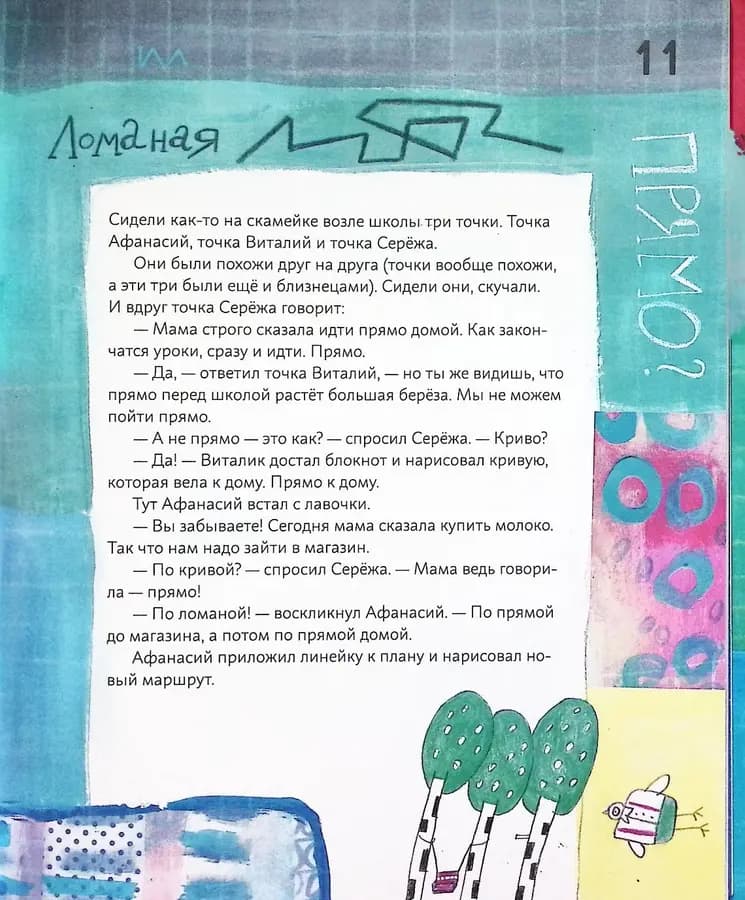 11
Ломаная
ПРЯМО?
Сидели как-то на скамейке возле школы три точки. Точка
Афанасий, точка Виталий и точка Серёжа.
Они были похожи друг на друга (точки вообще похожи,
а эти три были ещё и близнецами). Сидели они, скучали.
И вдруг точка Серёжа говорит:
— Мама строго сказала идти прямо домой. Как закон-
чатся уроки, сразу и идти. Прямо.
— Да, — ответил точка Виталий, — но ты же видишь, что
прямо перед школой растёт большая берёза. Мы не можем
пойти прямо.
— А не прямо — это как? — спросил Серёжа. — Криво?
— Да! — Виталик достал блокнот и нарисовал кривую,
которая вела к дому. Прямо к дому.
Тут Афанасий встал с лавочки.
— Вы забываете! Сегодня мама сказала купить молоко.
Так что нам надо зайти в магазин.
— По кривой? — спросил Серёжа. — Мама ведь говори-
ла — прямо!
— По ломаной! — воскликнул Афанасий. — По прямой
до магазина, а потом по прямой домой.
Афанасий приложил линейку к плану и нарисовал но-
вый маршрут.